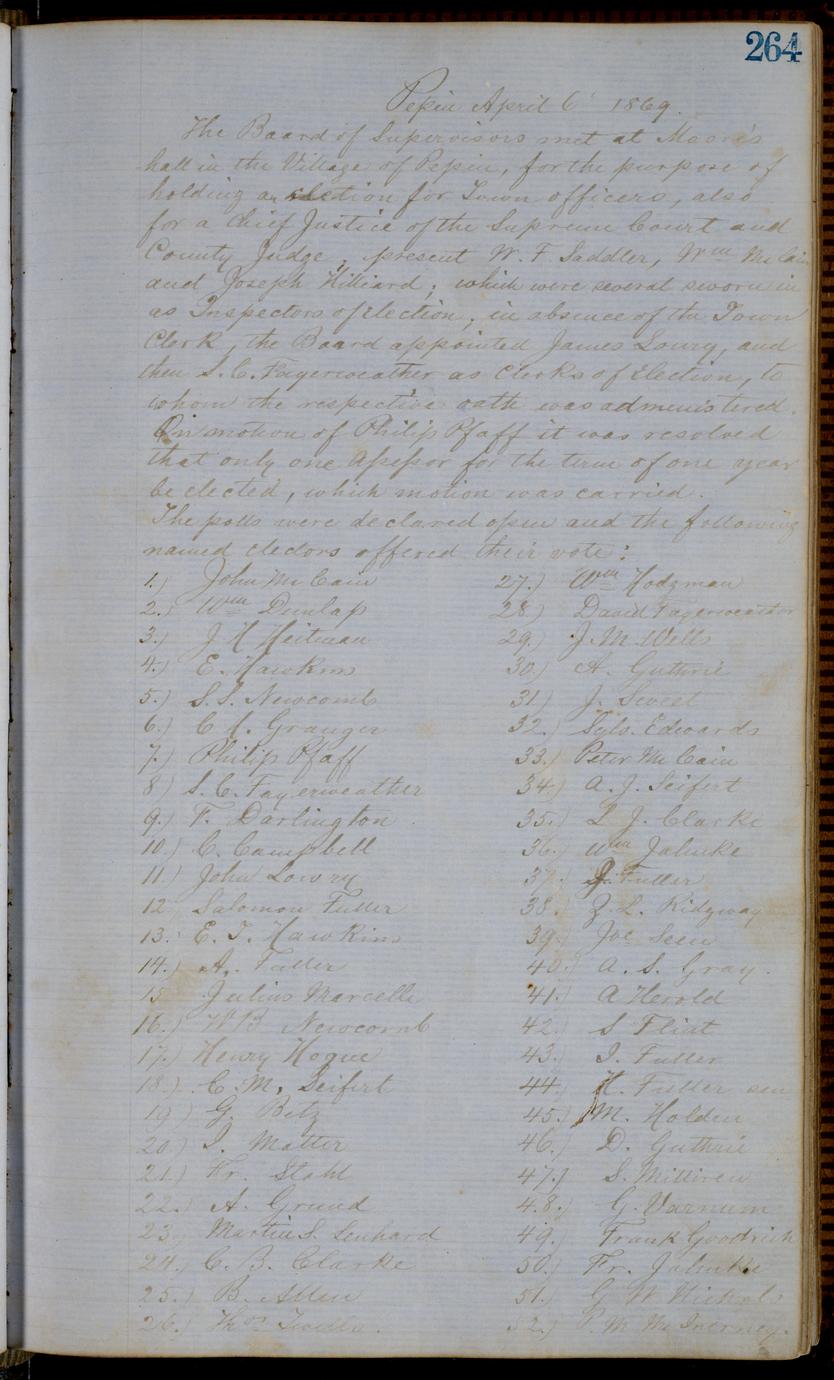 264
Pepin April 6 1869.
The Board of Supervisors met at Moore's
hall in the Village of Pepin, for the purpose of
holding an election for Town officers, also
for a Chief Justice of the Supreme Court and
County Judge; present W. F. Saddler, Wm McCain
and Joseph Hilliard; which were several sworn in
as Inspectors of Election; in absence of the Town
Clerk, the Board appointed James Lowry, and
then S. C. Fayerweather as Clerks of Election, to
whom the respective oath was administered.
On motion of Philip Pfaff it was resolved
that only one Assessor for the term of one year
be elected, which motion was carried.
The polls were declared open and the following
named electors offered their vote:
1.) John McCain
2.) Wm Dunlap
3.) J H Heitman
4.) E. Hawkins
5.) S. S. Newcomb
6.) C A. Granger
7.) Philip Pfaff
8) S. C. Fayerweather
9.) F. Darlington
10.) C. Campbell
11.) John Lowry
12. Salomon Fuller
13. E. T. Hawkins
14.) A. Fuller
15 Julius Marcelle
16.) W B Newcomb
17.) Henry Hogue
18.) C. M. Seifert
19) G. Betz
20.) I. Matter
21.) Fr. Stahl
22.) A. Grund
23. Martin S. Lenhard
24.) C. B. Clarke
25.) B. Allen
26.) Thos
27.) Wm Hodgman
28) David Fayerweather
29.) J. M. Wells
30.) A. Guthrie
31) J. Sweet
32.) Sylv. Edwards
33.) Peter McCain
34) A. J. Seifert
35.) L J. Clarke
36.) Wm Jahnke
37. J. Fuller
38. Z. L. Ridgway
39. Joe Seen
40.) A. S. Gray.
41.) A Herold
42.) S Flint
43.) I. Fuller
44. H. Fuller sen
45.) M. Holden
46.) D. Guthrie
47.) S. Milliren
48.) G. Varnum
49.) Frank Goodrich
50.) Fr. Jahnke
51.) G W Nichols
52.) P. M McInerney.